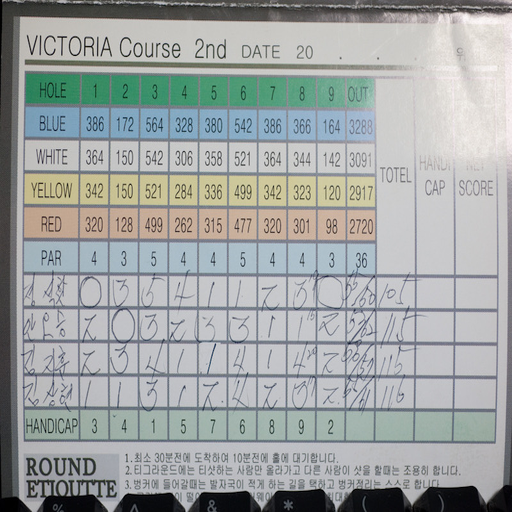 VICTORIA Course 2nd DATE 20 . . .
HOLE 1 2 3 4 5 6 7 8 9 OUT
BLUE 386 172 564 328 380 542 386 366 164 3288
WHITE 364 150 542 306 358 521 364 344 142 3091
TOTEL HANDI CAP SCORE
YELLOW 342 150 521 284 336 499 342 323 120 2917
RED 320 128 499 262 315 477 320 301 98 2720
PAR 4 3 5 4 4 5 4 4 3 36
0 3 5 4 1 1 2 3 0 105
2 0 3 2 3 3 1 1 2 115
2 3 4 1 1 4 1 4 2 115
1 1 3 1 2 4 2 3 2 116
HANDICAP 3 4 1 5 7 6 8 9 2
ROUND ETIQUTTE
1.최소 30분전에 도착하여 10분전에 홀에 대기합니다.
2.티그라운드에는 티샷하는 사람만 올라가고 다른 사람이 샷을 할때는 조용히 합니다.
3.벙커에 들어갈때는 발자국이 적게 하는 길을 택하고 벙커정리는 스스로 합니다.
% ^ & * ( )